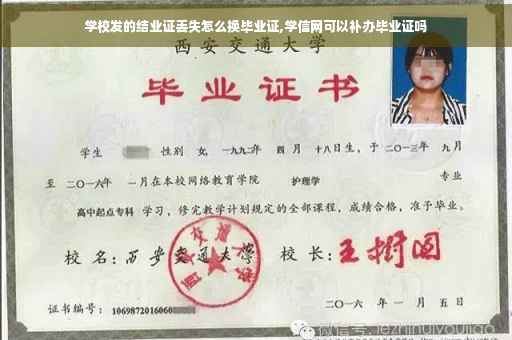 学校发的结业证丢失怎么换毕业证,学信网可以补办毕业证吗
西安交通大学
毕业证书
学生 性别 女,一九九二年 四月 十八日生,于二〇一三年 九月
至 二〇一六年 一月在本校网络教育学院 护理学 专业
高中起点专科 学习,修完教学计划规定的全部课程,成绩合格,准予毕业。
校名:西安交通大学 校长:王树国
西安交通大学
二〇一六年 一月 五日
证书编号:1069872016060
微信号:jezhihuiyoujiao